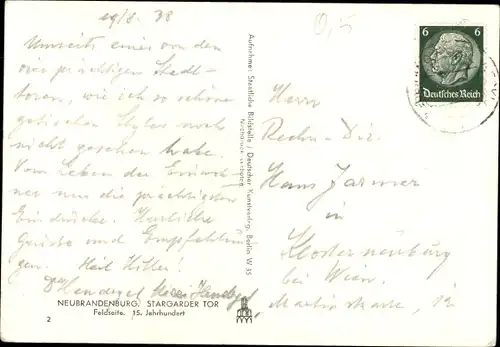 29/8. 38
Umseits eines von den
vier prächtigen Stadt-
toren, wie ich so schöne
gotischen Styles noch
nicht gesehen habe.
Vom Leben der Einwoh-
ner nur die prächtigsten
Eindrücke. Herzliche
Grüße und Empfehlun-
gen. Heil Hitler!
NEUBRANDENBURG. STARGARDER TOR
Feldseite. 15. Jahrhundert
2
Aufnahme: Staatliche Bildstelle / Deutscher Kunstverlag, Berlin W 35
Nachdruck verboten
0,5
6 6
Deutsches Reich
Herrn
Rechn. Dir.
Hans Jarmer
in
Klosterneuburg
bei Wien.
Martinstraße, 12